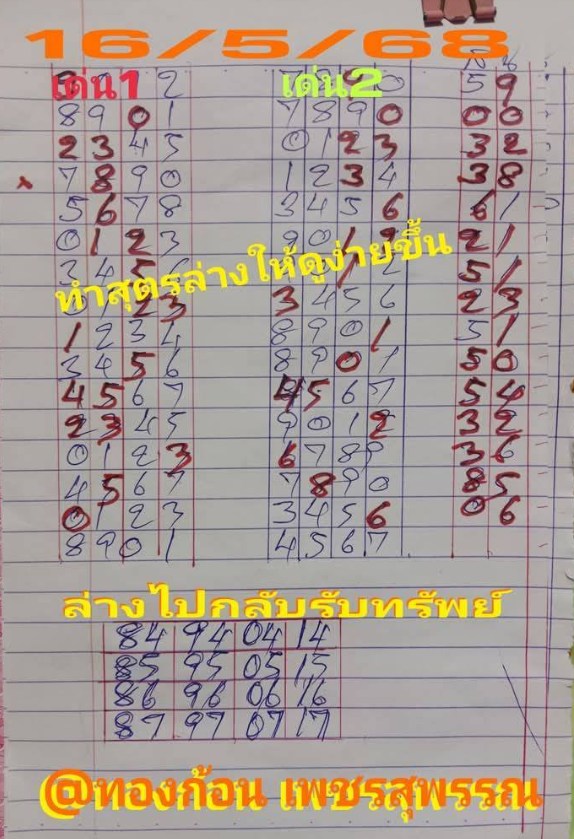 16/5/68
เด่น1 2 เด่น2 0 5 9
8 9 0 1 7 8 9 0 0 0
2 3 4 5 0 1 2 3 3 2
x 7 8 9 0 1 2 3 4 3 8
5 6 7 8 3 4 5 6 6 1
0 1 2 3 9 0 1 2 2 1
3 4 5 6 1 2 5 1
ทำสูตรล่างให้ดูง่ายขึ้น
0 1 2 3 3 4 5 6 2 3
1 2 3 4 8 9 0 1 5 1
3 4 5 6 8 9 0 1 5 0
4 5 6 7 4 5 6 7 5 4
2 3 4 5 9 0 1 2 3 2
0 1 2 3 6 7 8 9 3 6
4 5 6 7 7 8 9 0 8 5
0 1 2 3 3 4 5 6 0 6
8 9 0 1 4 5 6 7
ล่างไปกลับรับทรัพย์
84 94 04 14
85 95 05 15
86 96 06 16
87 97 07 17
@ทองก้อน เพชรสุพรรณ